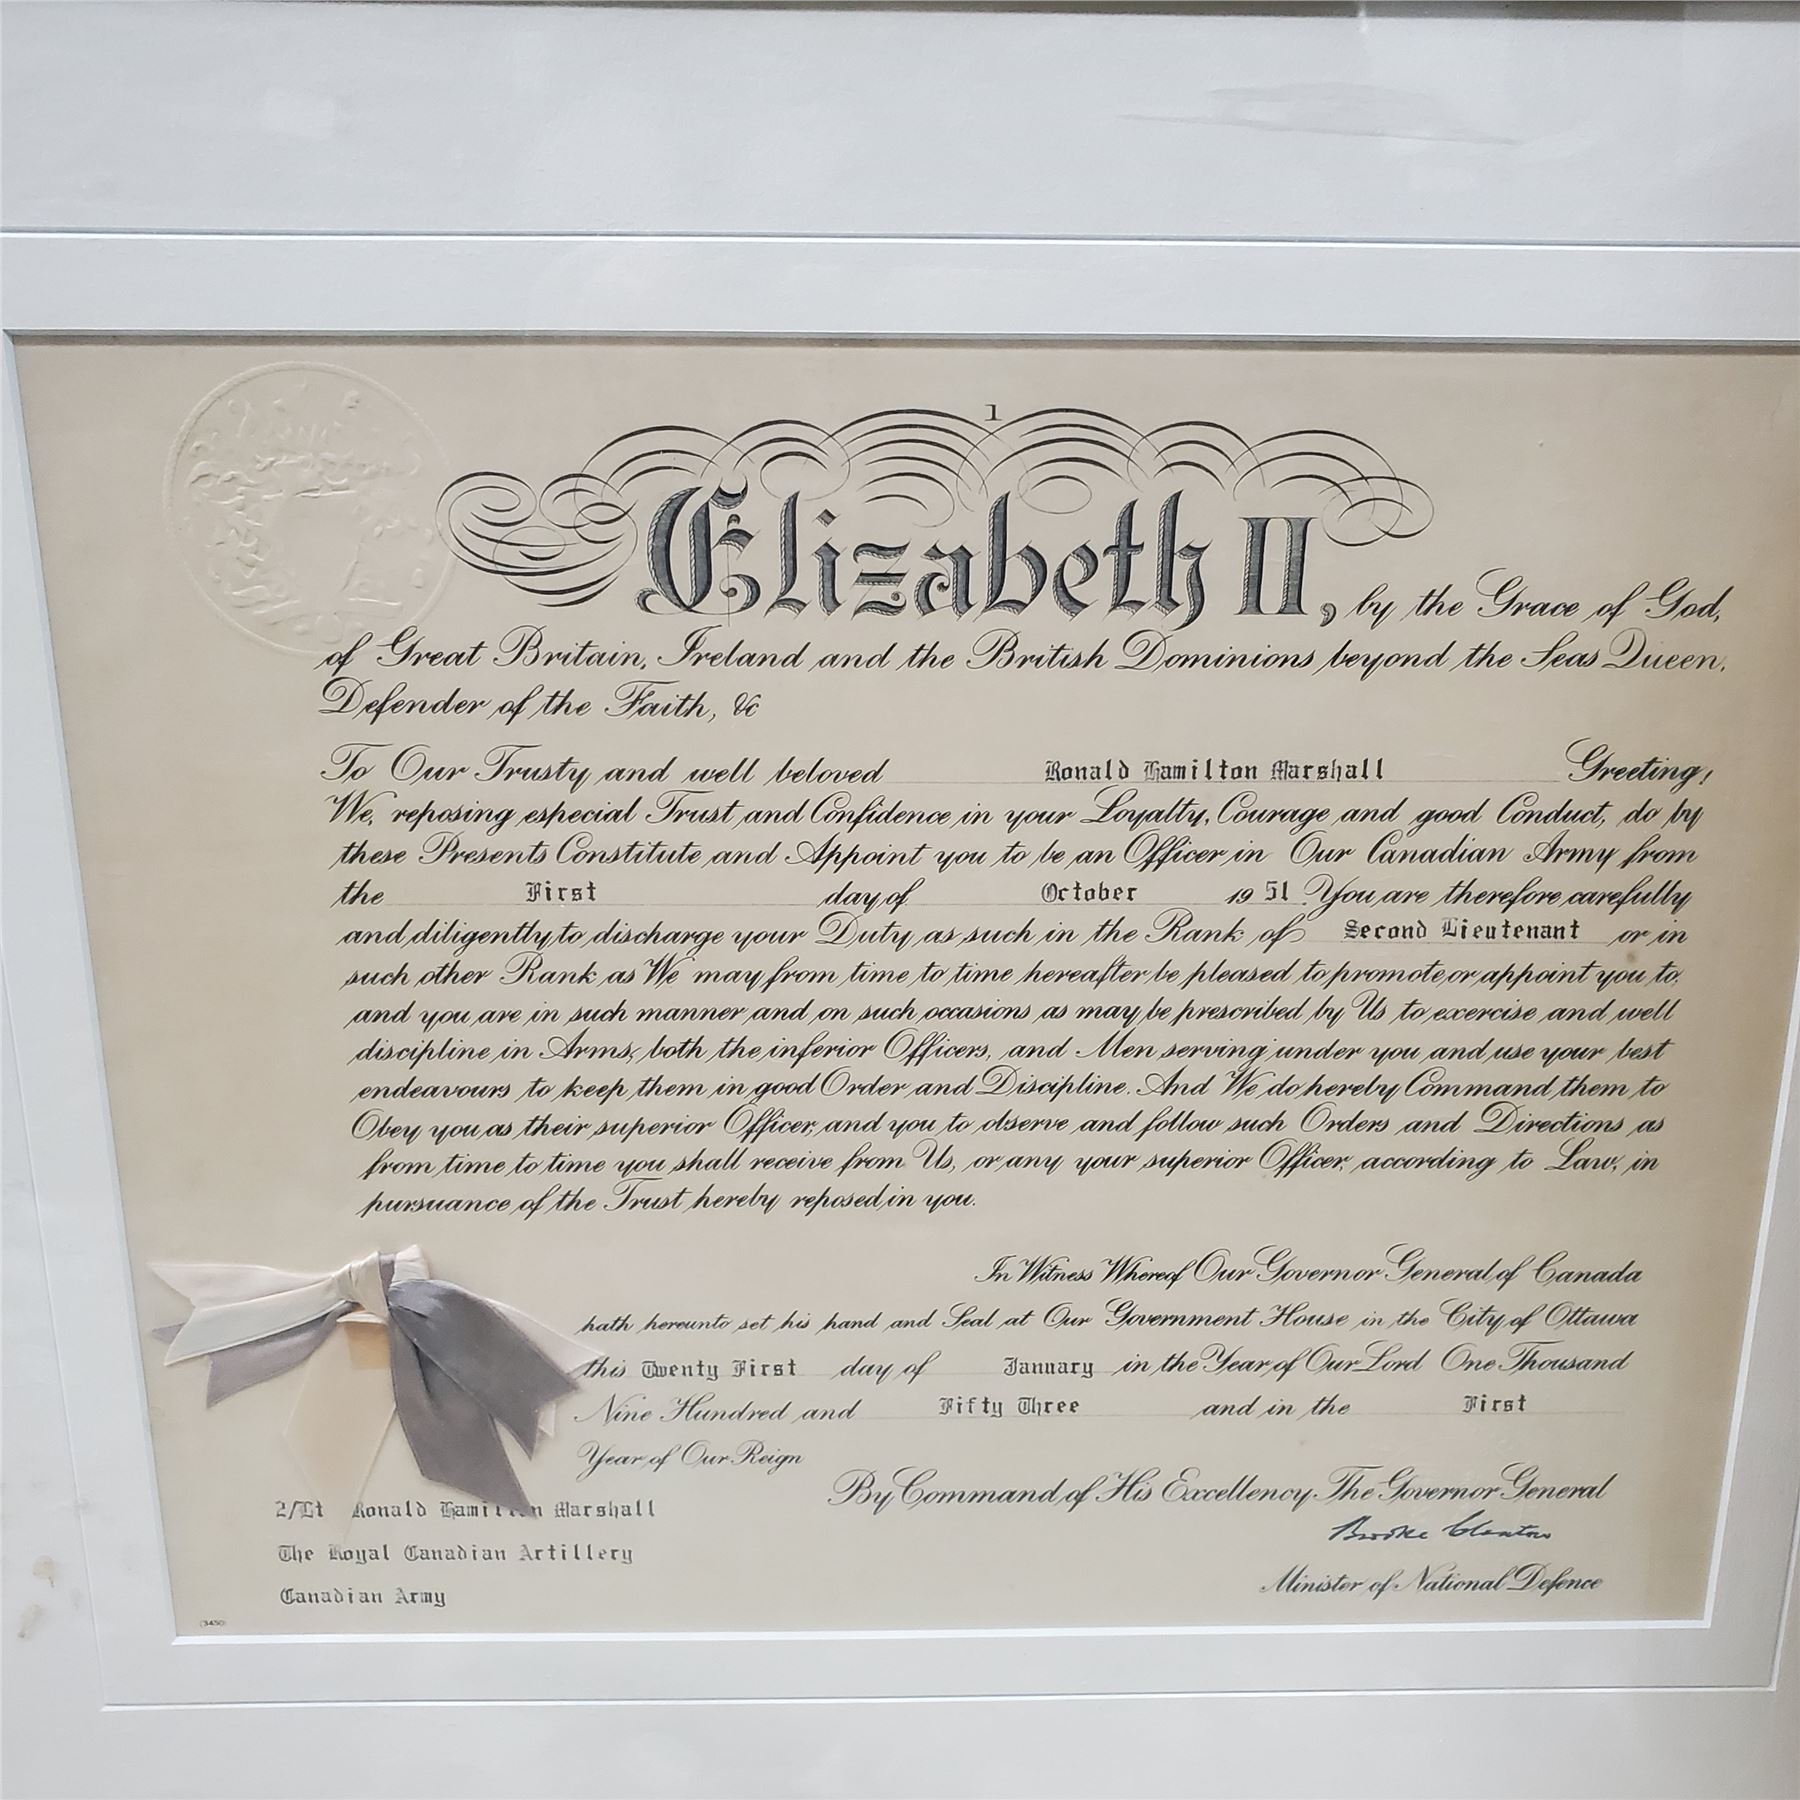 1
Elizabeth II, by the Grace of God,
of Great Britain, Ireland and the British Dominions beyond the Seas Queen,
Defender of the Faith, &c
To Our Trusty and well beloved Ronald Hamilton Marshall Greeting;
We, reposing especial Trust and Confidence in your Loyalty, Courage and good Conduct, do by
these Presents Constitute and Appoint you to be an Officer in Our Canadian Army from
the First day of October 19 51. You are therefore carefully
and diligently to discharge your Duty as such in the Rank of Second Lieutenant or in
such other Rank as We may from time to time hereafter be pleased to promote or appoint you to,
and you are in such manner and on such occasions as may be prescribed by Us to exercise and well
discipline in Arms, both the inferior Officers, and Men serving under you and use your best
endeavours to keep them in good Order and Discipline. And We do hereby Command them to
Obey you as their superior Officer, and you to observe and follow such Orders and Directions as
from time to time you shall receive from Us, or any your superior Officer, according to Law, in
pursuance of the Trust hereby reposed in you.
In Witness Whereof Our Governor General of Canada
hath hereunto set his hand and Seal at Our Government House in the City of Ottawa
this Twenty First day of January in the Year of Our Lord One Thousand
Nine Hundred and Fifty Three and in the First
Year of Our Reign
By Command of His Excellency The Governor General
Brooke Claxton
Minister of National Defence
2/Lt Ronald Hamilton Marshall
The Royal Canadian Artillery
Canadian Army
(3450)